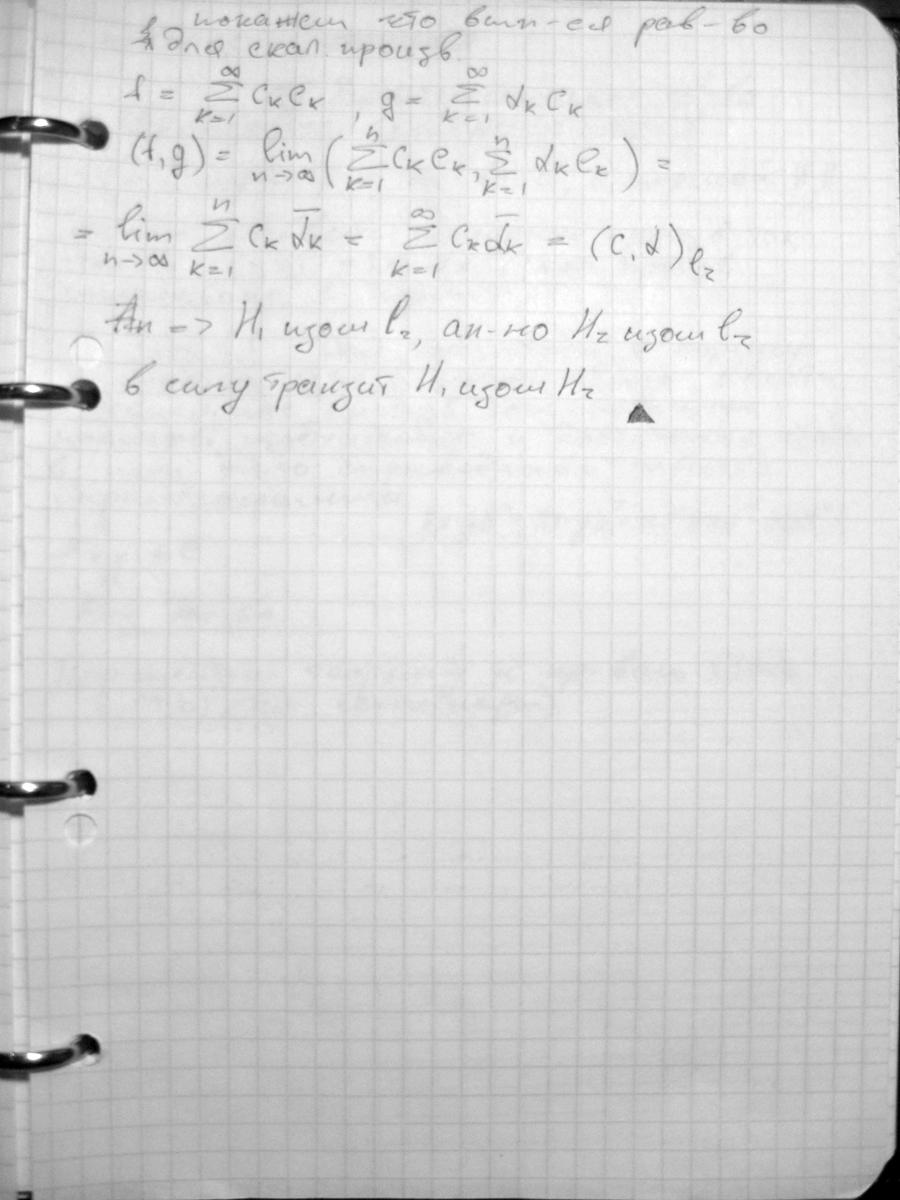 покажем что вып-ся рав-во
для скал. произв.
f = ∑_{k=1}^{∞} c_k e_k , g = ∑_{k=1}^{∞} α_k e_k
(f,g) = lim_{n→∞} ( ∑_{k=1}^{n} c_k e_k, ∑_{k=1}^{n} α_k e_k ) =
= lim_{n→∞} ∑_{k=1}^{n} c_k \overline{α_k} = ∑_{k=1}^{∞} c_k \overline{α_k} = (c, α)_{l_2}
=> H_1 изом l_2, ан-но H_2 изом l_2
в силу транзит H_1 изом H_2 ▲